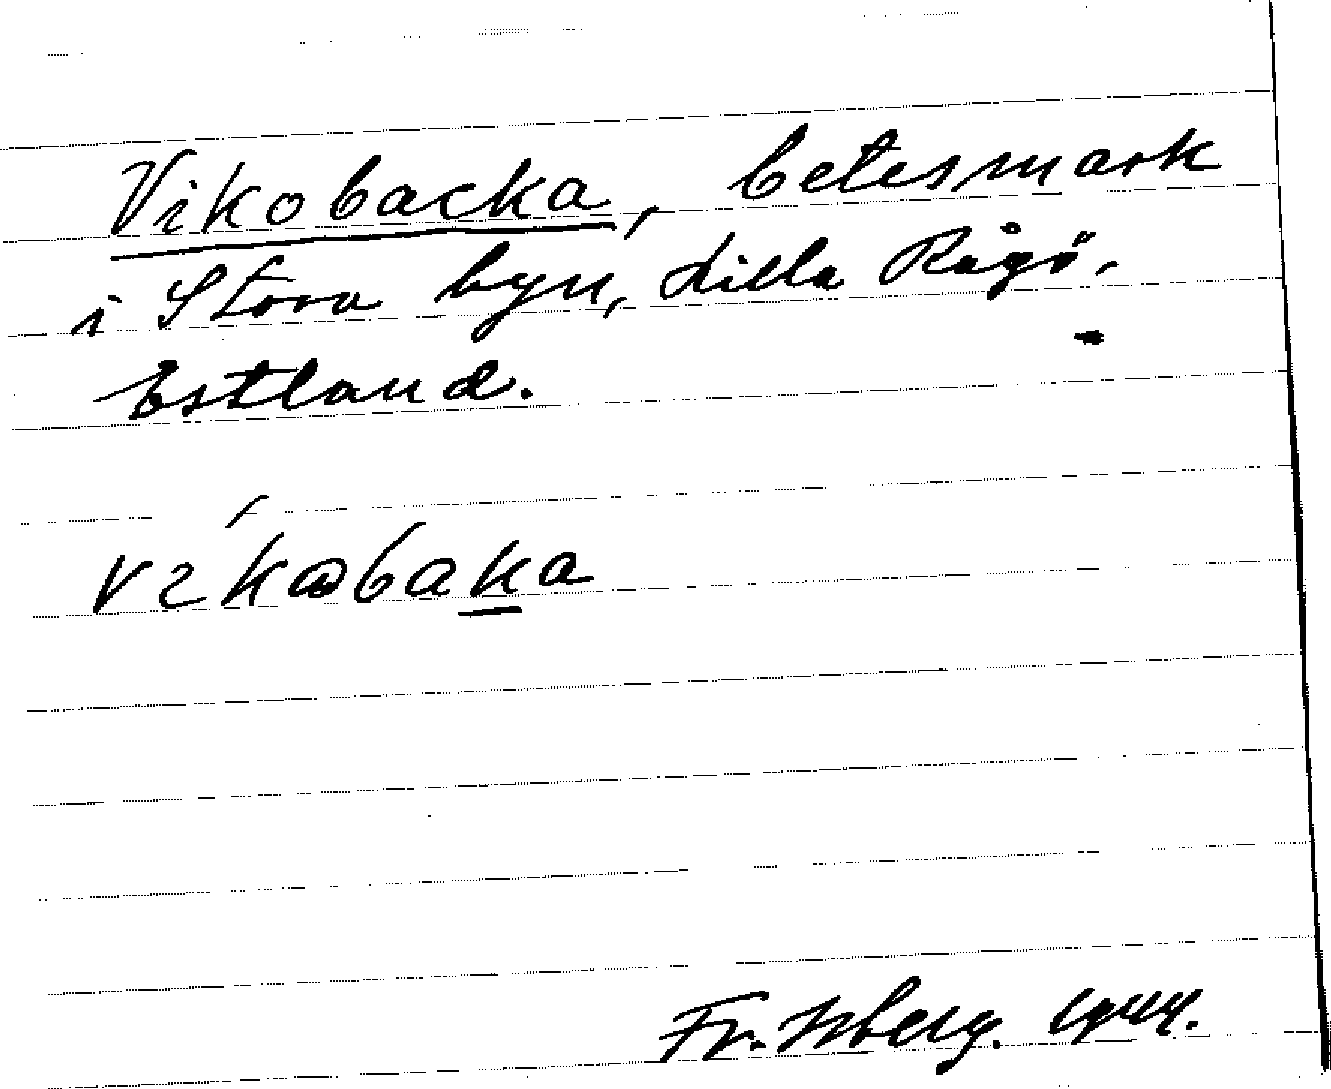 Vikobacka, betesmark
i Stora byn, Lilla Rågö,
Estland.
vikabaka
Fr. Isberg. 1944.